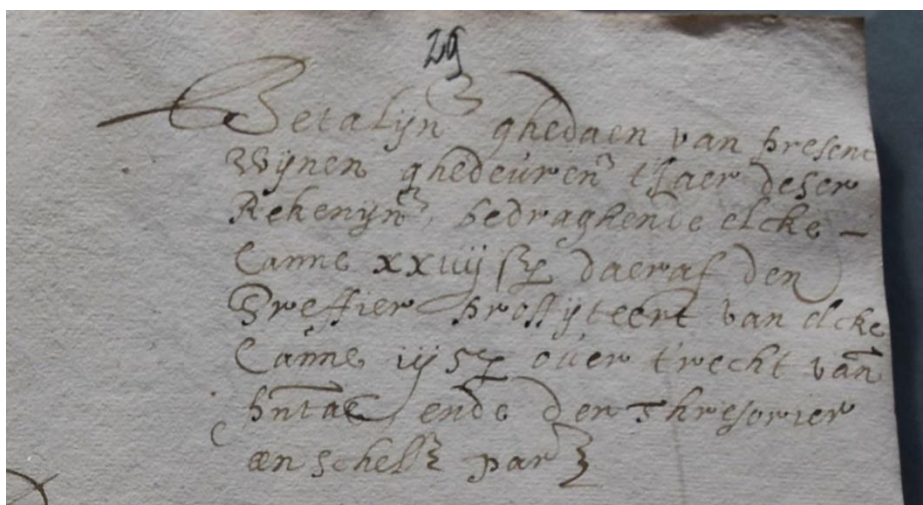 29
Betalijn ghedaen van present
Wijnen ghedeuren t'Jaer deser
Rekenyn, bedraghende elcke -
Canne xxiiij daeraf den
Greffier proffijteert van elcke
Canne iij over t'recht van
ende den Thresorier
een schell par